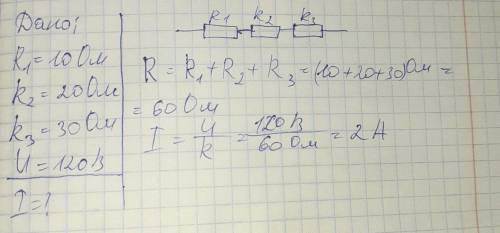 Дано:
R1 = 10 Ом
R2 = 20 Ом
R3 = 30 Ом
U = 120 В
I = ?
R1 R2 R3
R = R1 + R2 + R3 = (10+20+30) Ом =
= 60 Ом
I = U/R = 120 В/60 Ом = 2 А